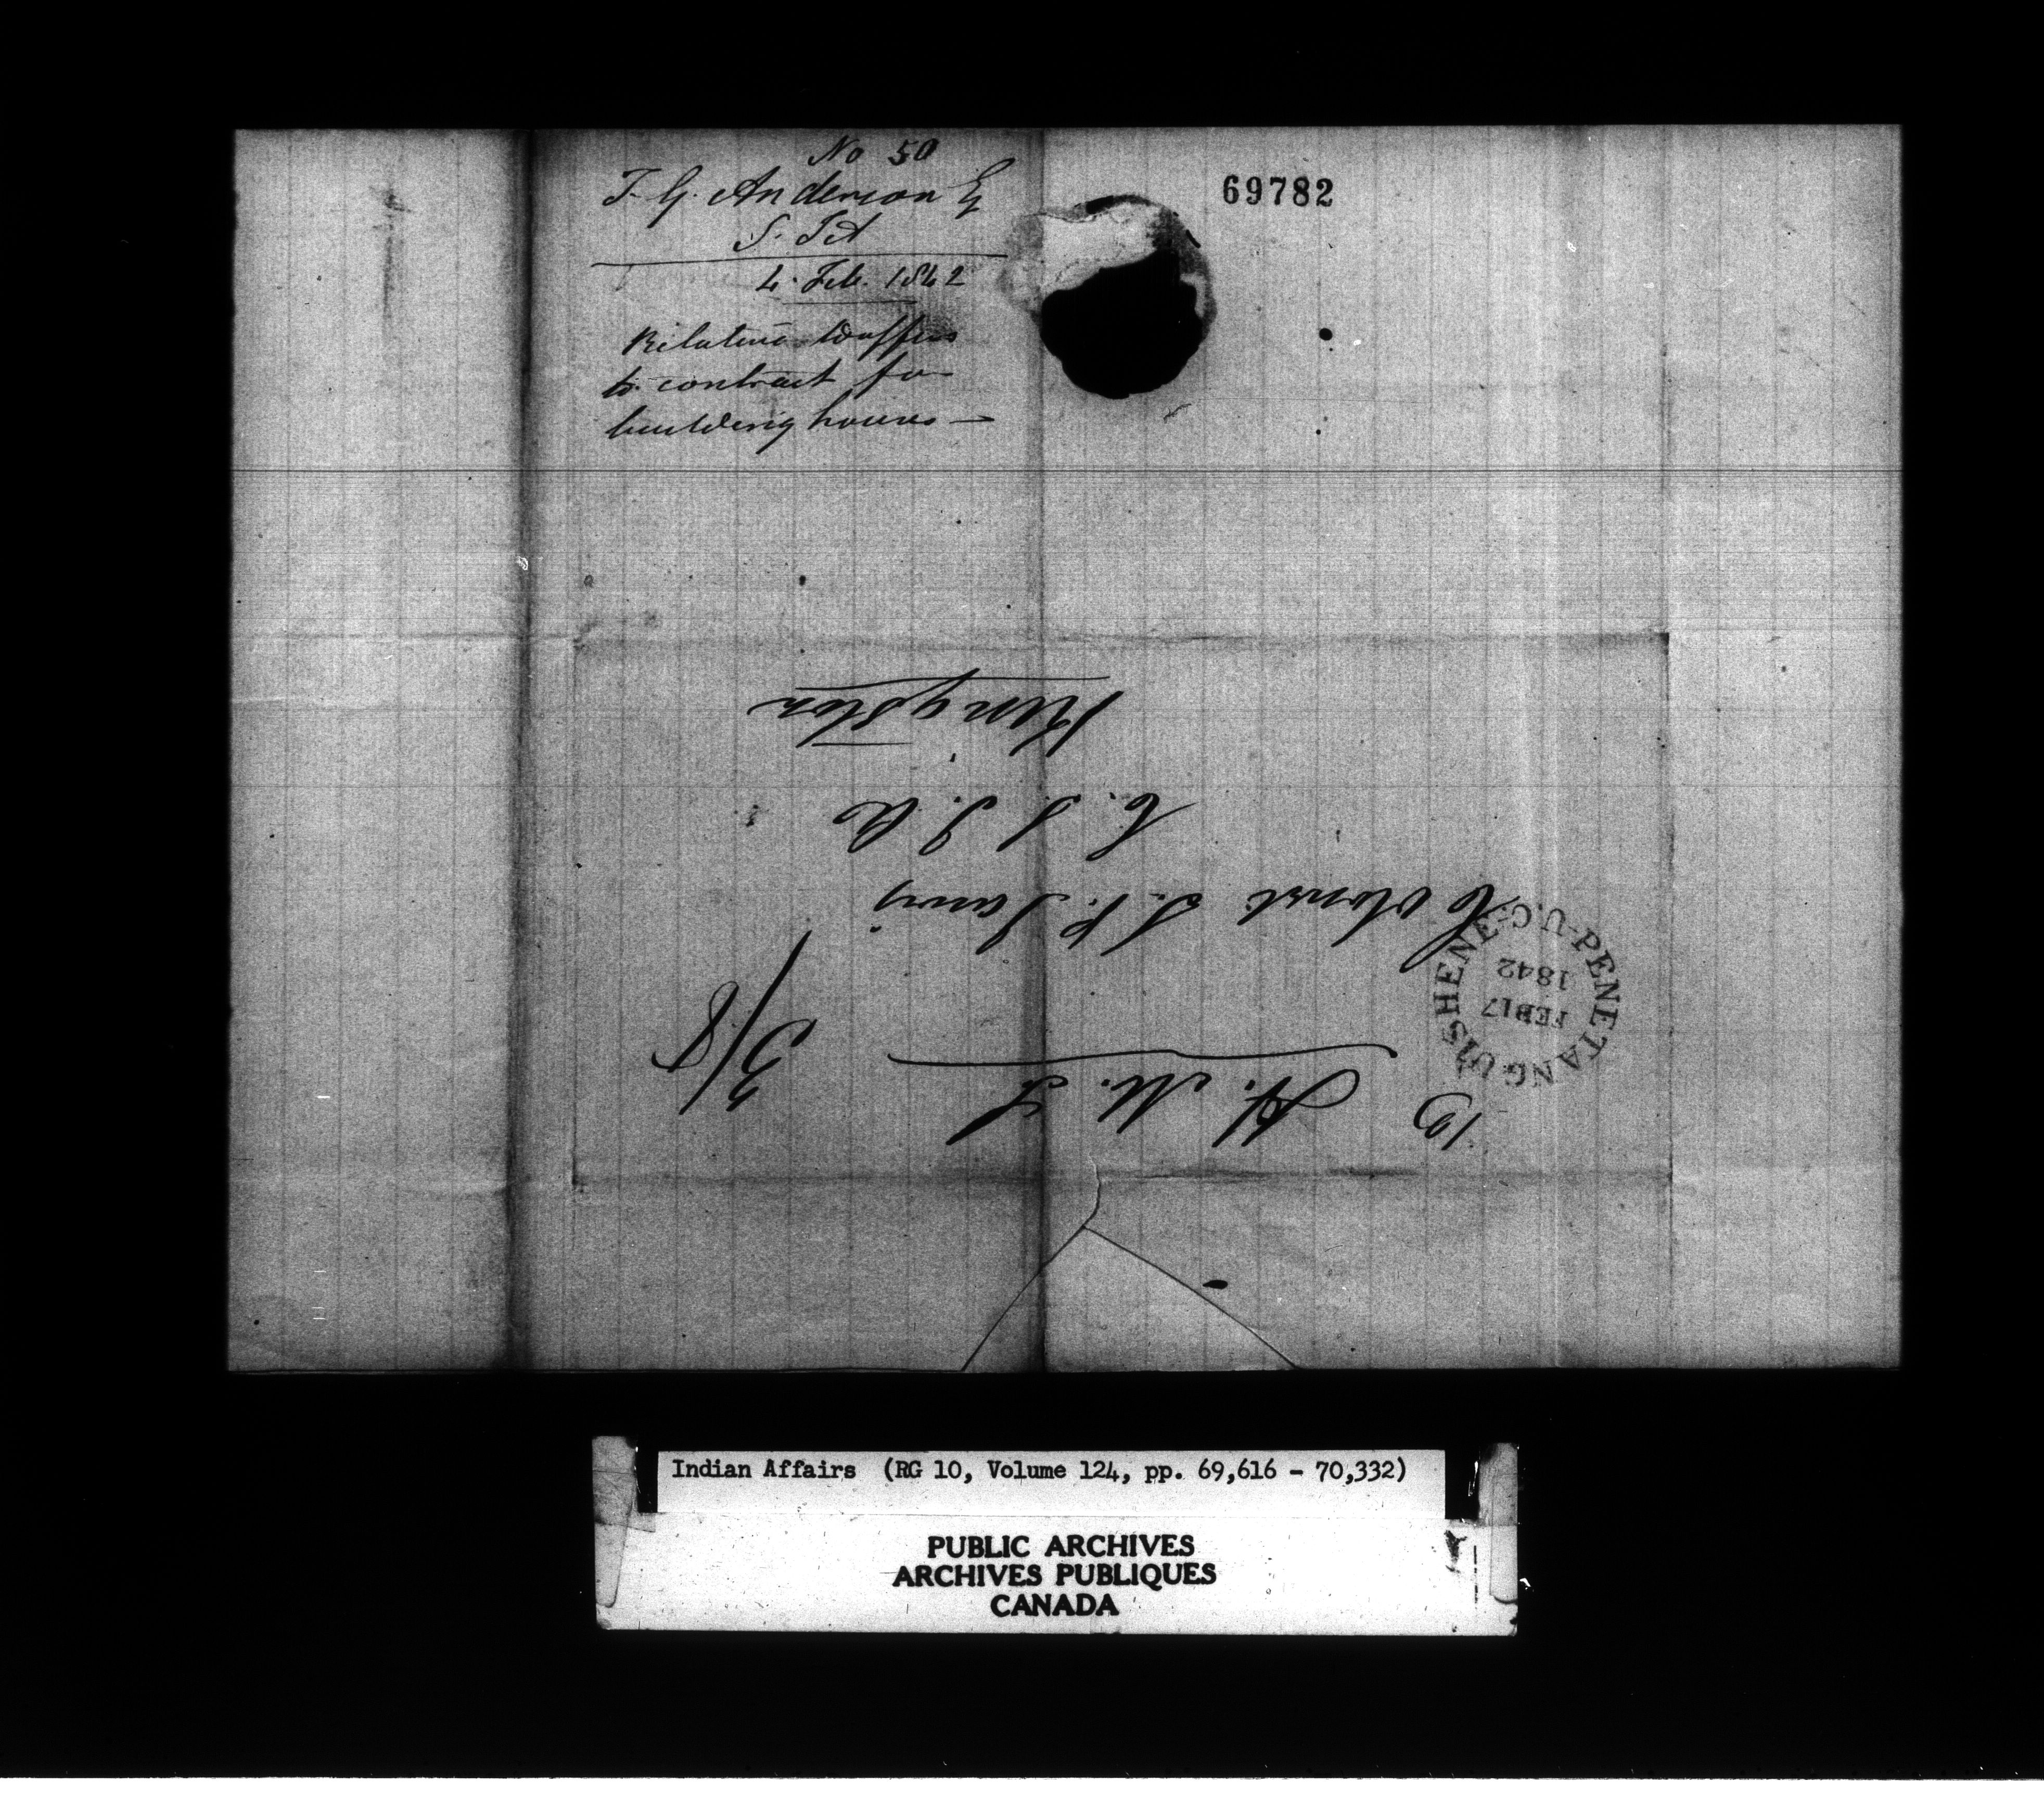 No 50
T. G. Anderson E
S. I A
4. Feb. 1842
Relative to offers
to contract for
building houses —
69782
H. M. S
3/8
Colonel S. P. Jarvis
C. S. I. A
Kingston
PENETANGUISHENE U.C.
FEB 17
1842
Indian Affairs (RG 10, Volume 124, pp. 69,616 - 70,332)
PUBLIC ARCHIVES
ARCHIVES PUBLIQUES
CANADA